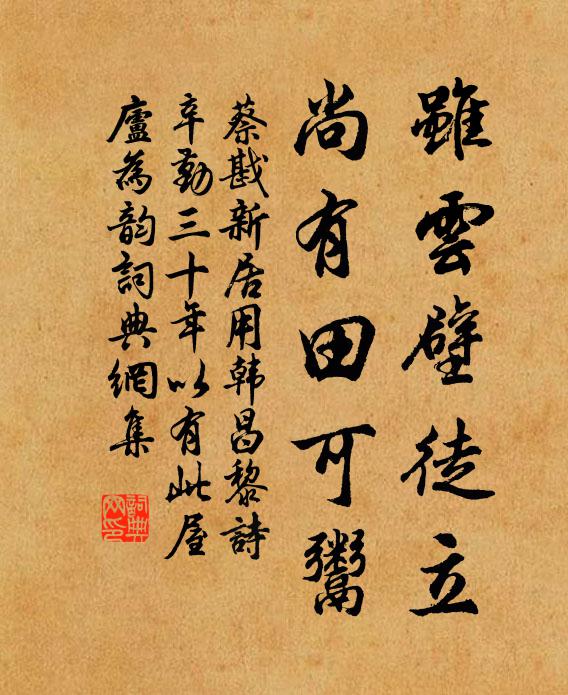 雖雲壁徒立
尚有田可鬻
蔡戡新居用韩昌黎詩
辛勤三十年以有此屋
廬為韵詞典網集
詞典网印